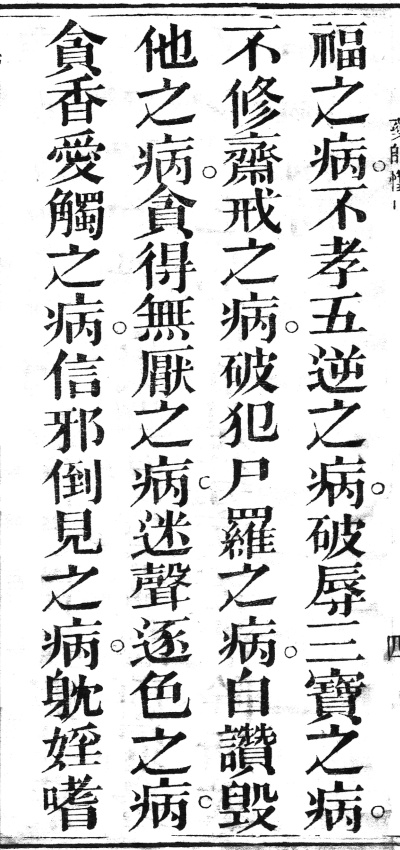 福之病。不孝五逆之病。破辱三寶之病。
不修齋戒之病。破犯尸羅之病。自讚毀
他之病。貪得無厭之病。迷聲逐色之病。
貪香愛觸之病。信邪倒見之病。躭婬嗜